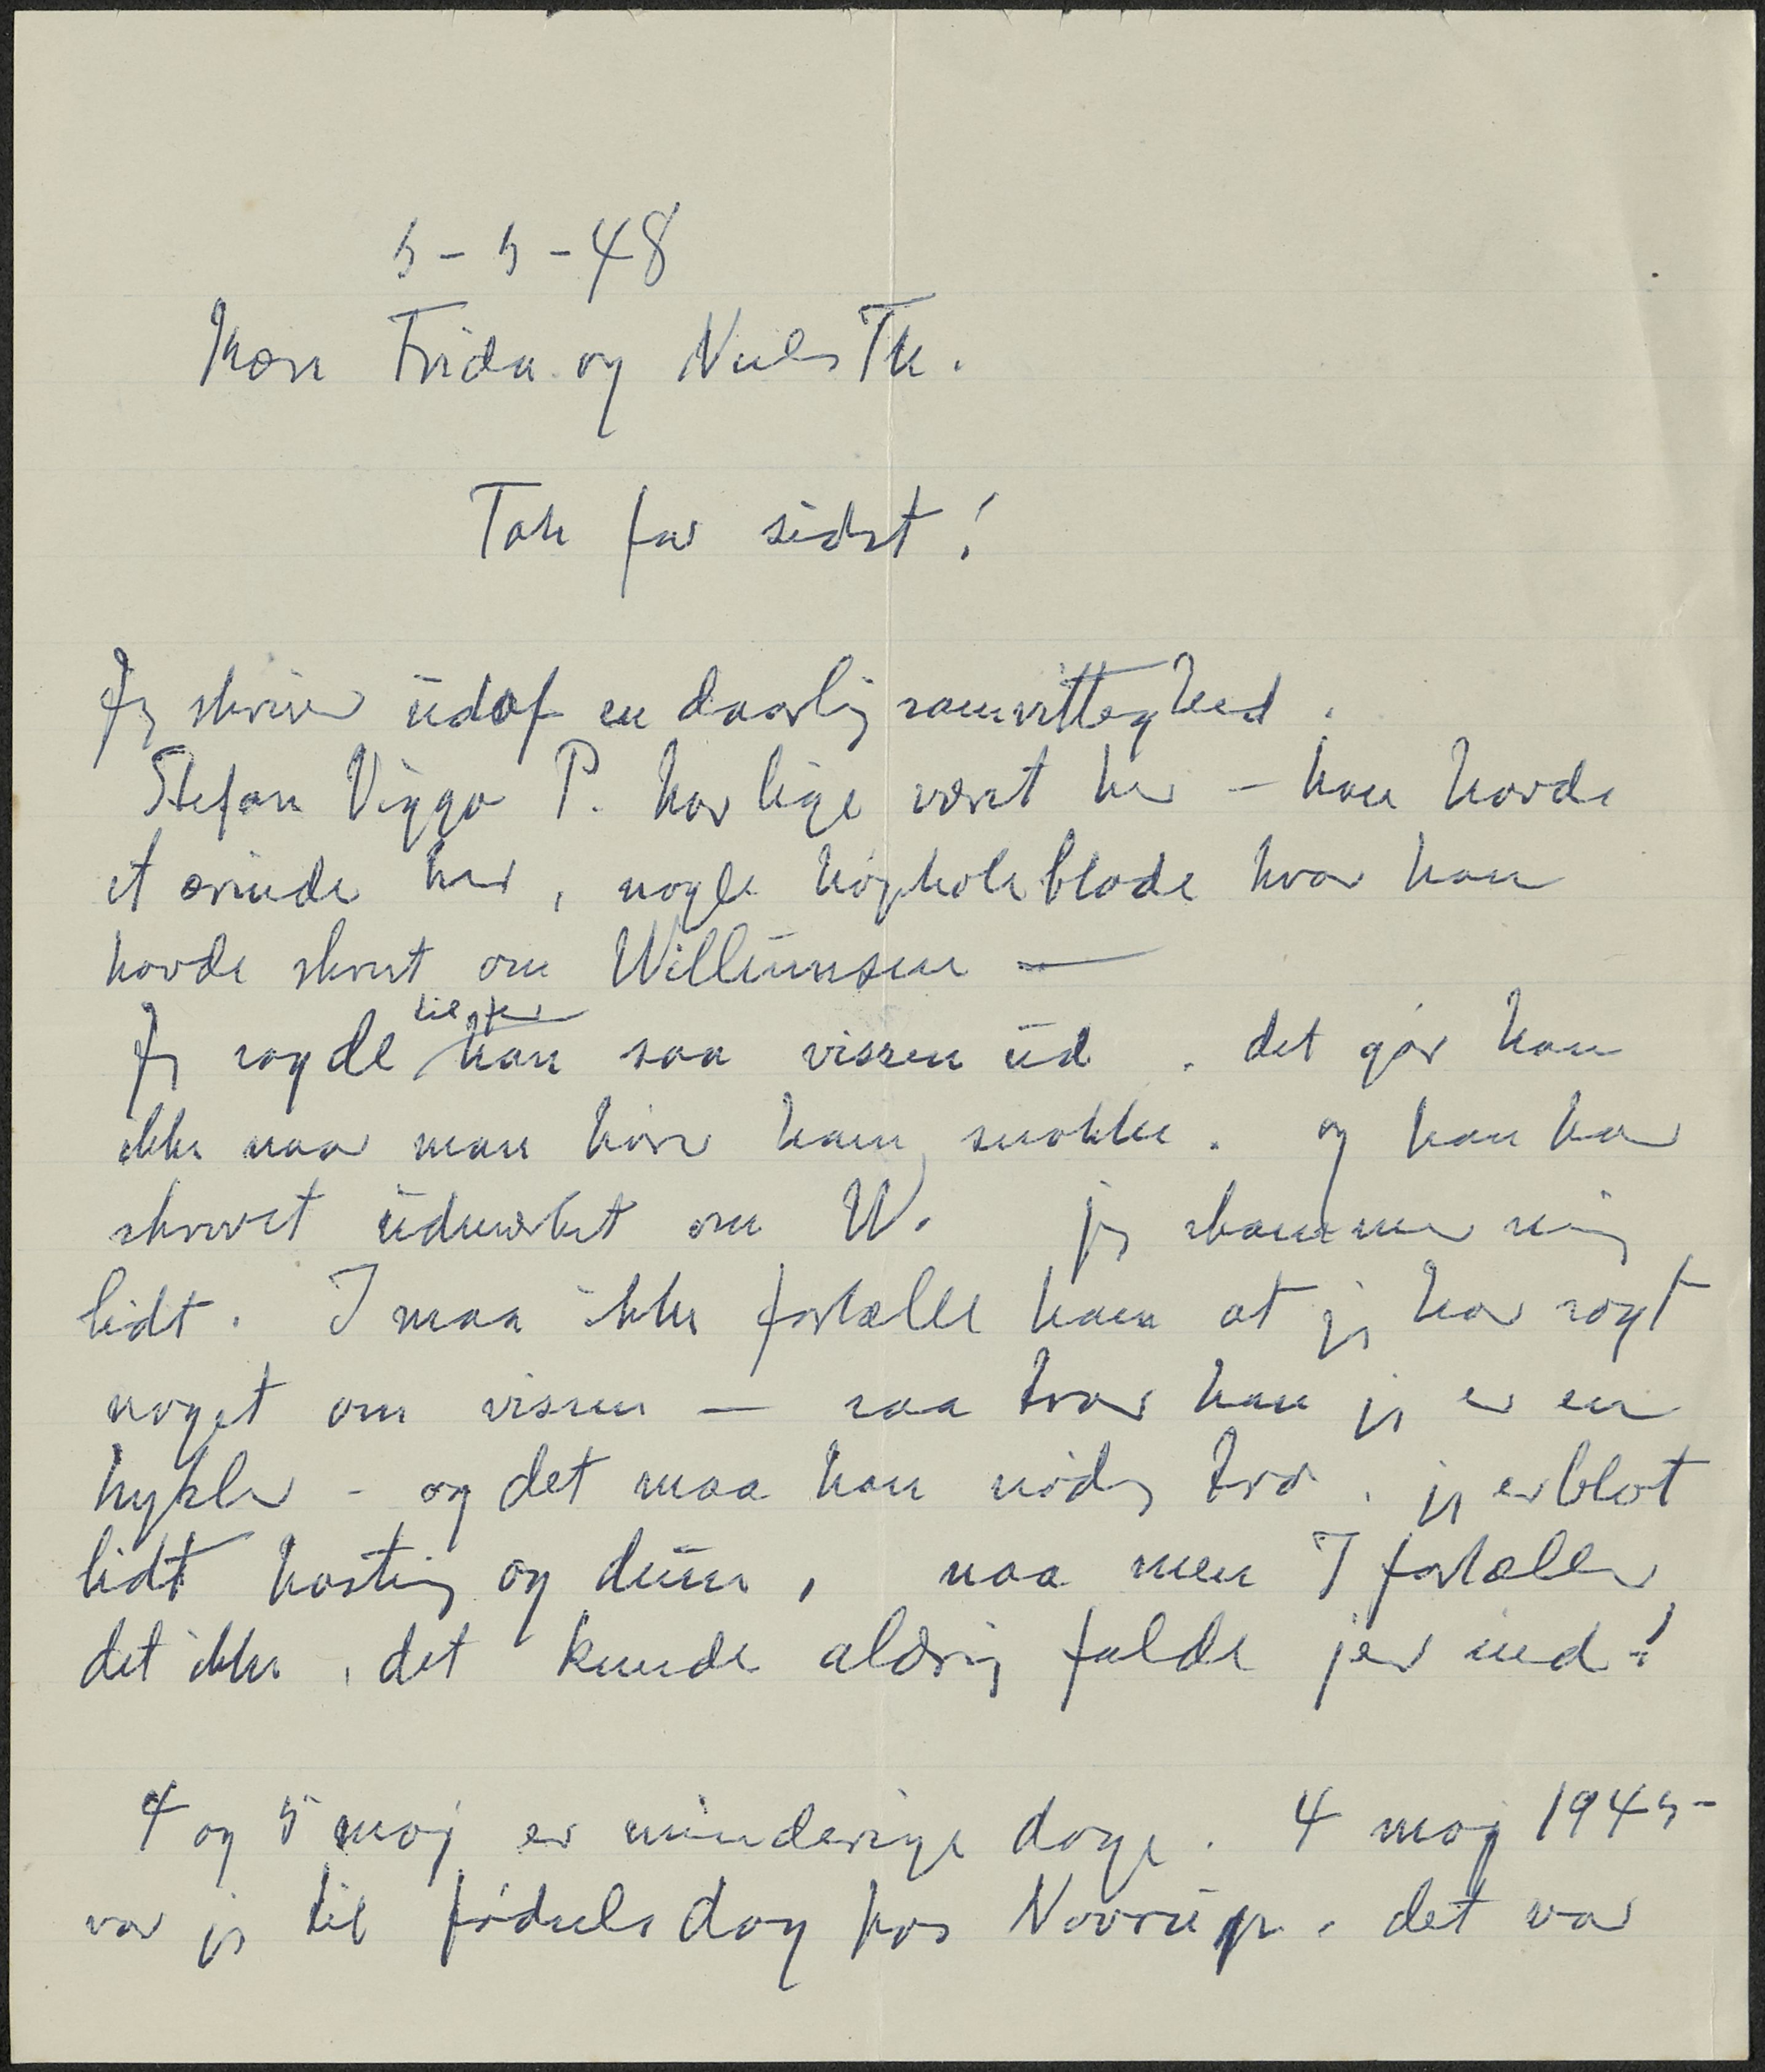 5-5-48
Kære Frida og Niels Th.
Tak for sidst!
Jeg skriver udaf en daarlig samvittighed.
Stefan Viggo P. har lige været her – han havde
et ærinde her, nogle højskoleblade hvor han
havde skrevet om Willumsen —
Jeg sagde til jer han saa vissen ud. det gør han
ikke naar man hører ham snakke. og han har
skrevet udmærket om W. jeg skammer mig
lidt. I maa ikke fortælle ham at jeg har sagt
noget om vissen — saa tror han jeg er en
hykler - og det maa han nødig tro. jeg er blot
lidt hastig og dum, naa men I fortæller
det ikke, det kunde aldrig falde jer ind!
4 og 5 maj er minderige dage. 4 maj 1945-
var jeg til fødselsdag hos Novrup. det var